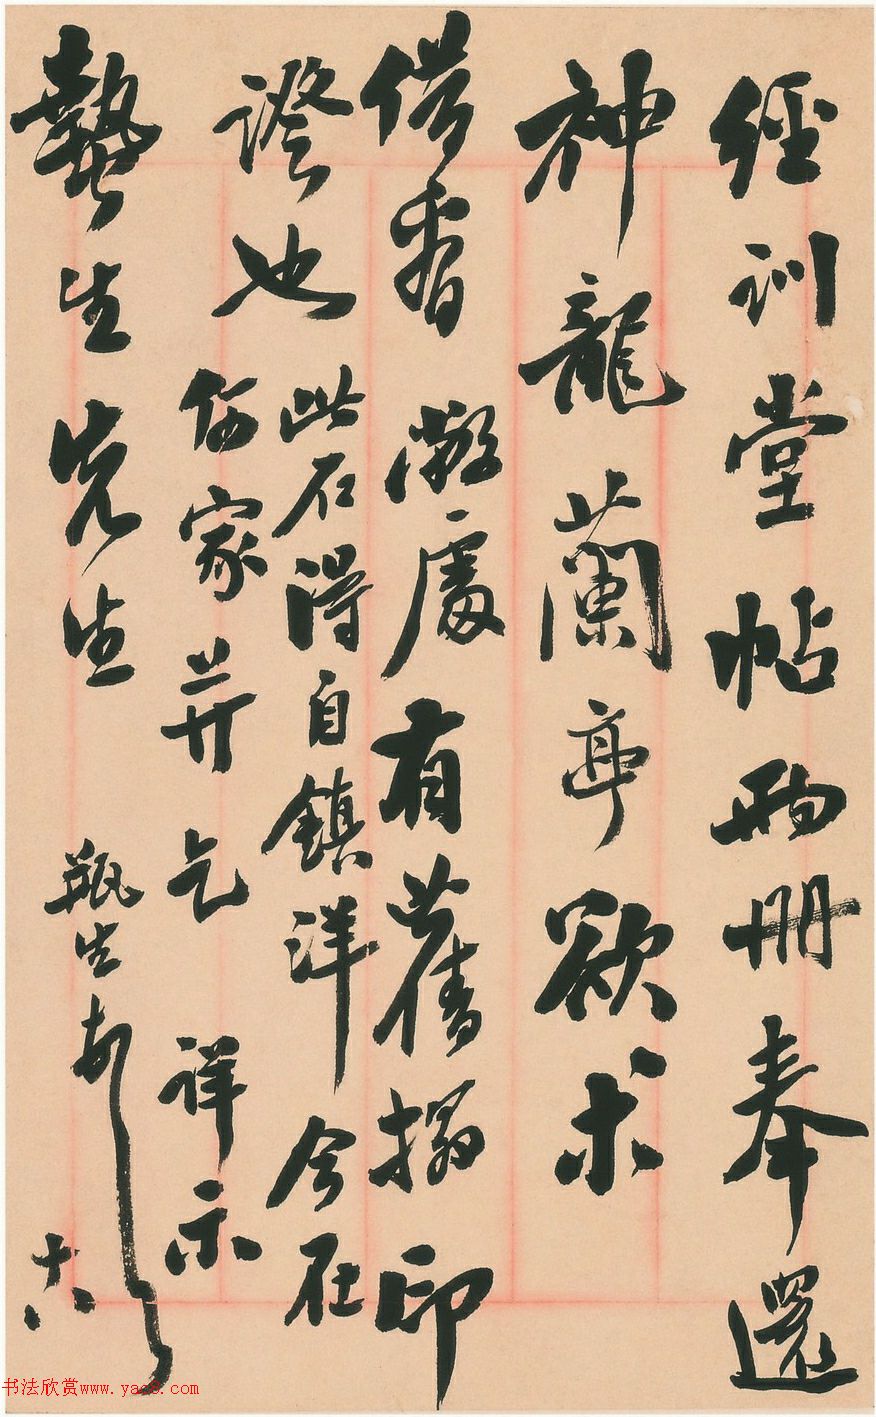 經訓堂帖兩冊奉還
神龍蘭亭欲求
借看敝處有舊搨印
證也
此石得自鎮洋今在
何家并乞祥示
蟄生先生
瓶生
十六
书法欣赏www.yac8.com